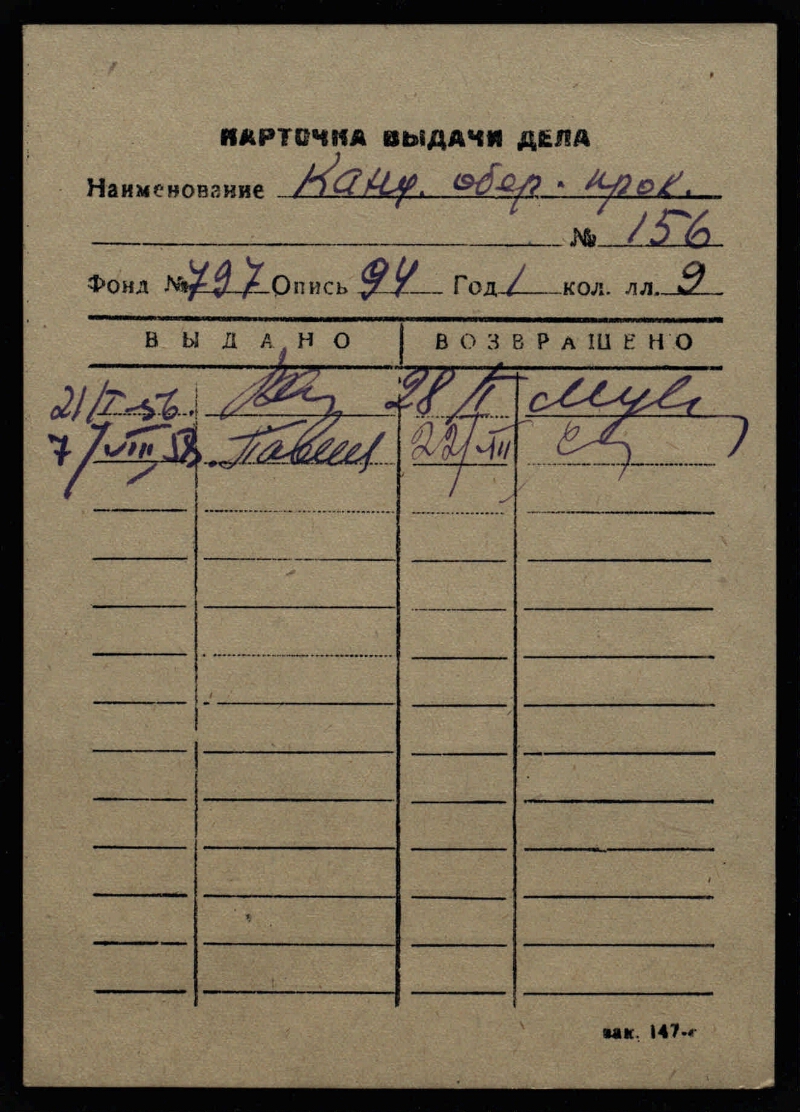 КАРТОЧКА ВЫДАЧИ ДЕЛА
Наименование Канц. обер. прок.
№ 156
Фонд № 797 Опись 94 Год 1 кол. лл. 9
ВЫДАНО ВОЗВРАШЕНО
21/I-56. 28/I
7/VIII 58 22/VIII
зак. 147-г